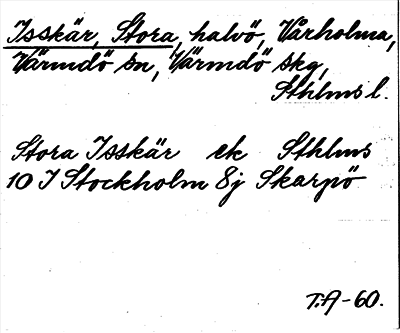 Isskär, Stora, halvö, Vårholma,
Värmdö sn, Värmdö skg,
Sthlms l.
Stora Isskär ek Sthlms
10 I Stockholm 8j Skarpö
T.A-60.